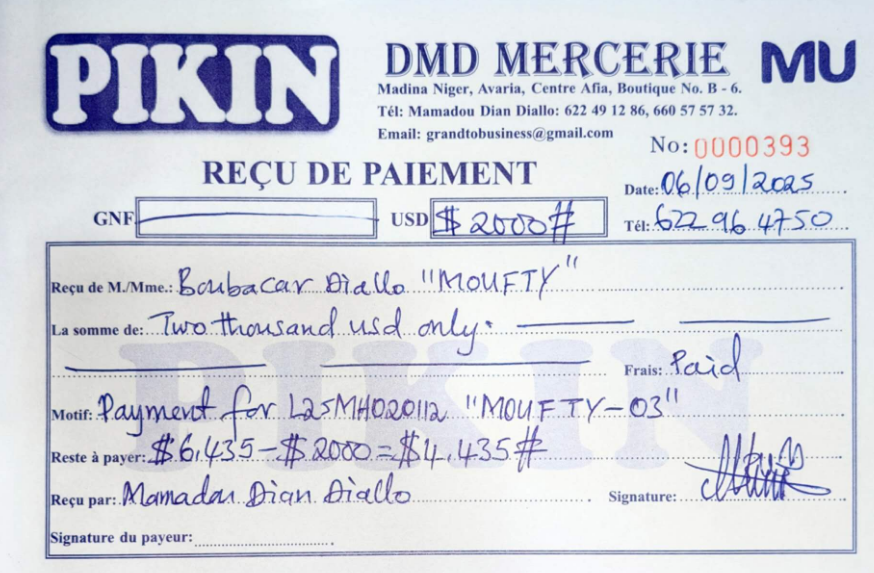 PIKIN
DMD MERCERIE
MU
Madina Niger, Avaria, Centre Afia, Boutique No. B - 6.
Tél: Mamadou Dian Diallo: 622 49 12 86, 660 57 57 32.
Email: grandtobusiness@gmail.com
No: 0000393
REÇU DE PAIEMENT
Date: 06/09/2025
GNF USD $ 2000#
Tél: 622 96 47 50
Reçu de M./Mme.: Boubacar Diallo "MOUFTY"
La somme de: Two thousand usd only.
Frais: Paid
Motif: Payment for L25MH020112 "MOUFTY-03"
Reste à payer: $6,435-$2000=$4,435#
Reçu par: Mamadou Dian Diallo Signature:
Signature du payeur:
PIKIN